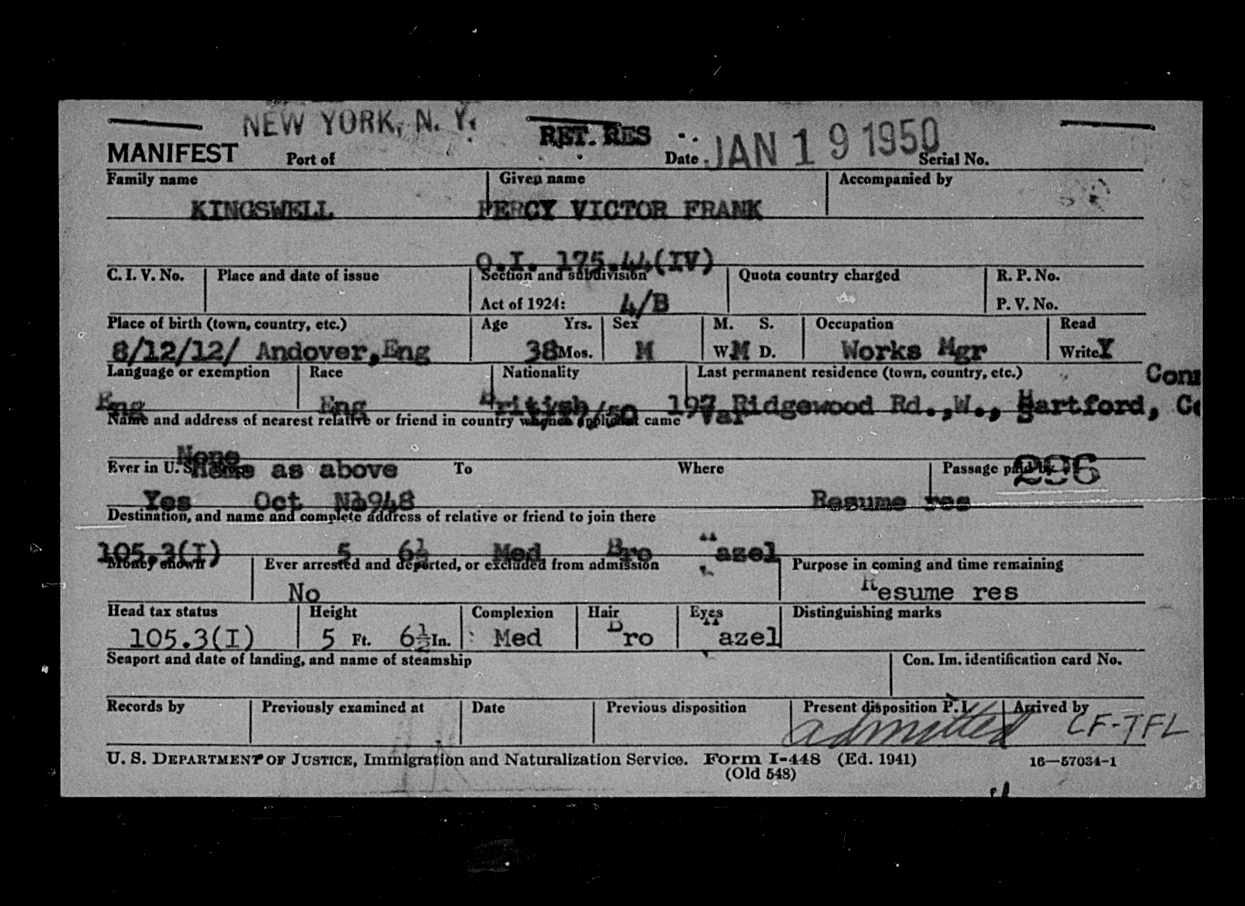 NEW YORK, N. Y. RET. RES JAN 19 1950
MANIFEST Port of Date Serial No.
Family name Given name Accompanied by
KINGSWELL PERCY VICTOR FRANK
O.I. 175.44(IV)
C. I. V. No. Place and date of issue Section and subdivision Quota country charged R. P. No.
Act of 1924: 4/B P. V. No.
Place of birth (town, country, etc.) Age Yrs. Sex M. S. Occupation Read
8/12/12/ Andover,Eng 38 Mos. M W M D. Works Mgr Write Y
Language or exemption Race Nationality Last permanent residence (town, country, etc.) Conn
Eng Eng British 197 Ridgewood Rd.,W., Hartford,
Name and address of nearest relative or friend in country whence applicant came
None
Ever in U. S. Same as above To Where Passage paid by 296
Yes Oct 1948 Resume res
Destination, and name and complete address of relative or friend to join there
105.3(I) 5 6½ Med Bro azel
Money shown Ever arrested and deported, or excluded from admission Purpose in coming and time remaining
No Resume res
Head tax status Height Complexion Hair Eyes Distinguishing marks
105.3(I) 5 Ft. 6½ In. Med Bro azel
Seaport and date of landing, and name of steamship Con. Im. identification card No.
Records by Previously examined at Date Previous disposition Present disposition P. I. Arrived by
admitted CF-TFL
U. S. DEPARTMENT OF JUSTICE, Immigration and Naturalization Service. Form I-448 (Ed. 1941) 16—57034-1
(Old 548)